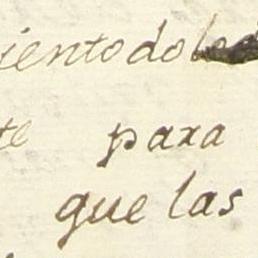 iento do
te para
que las